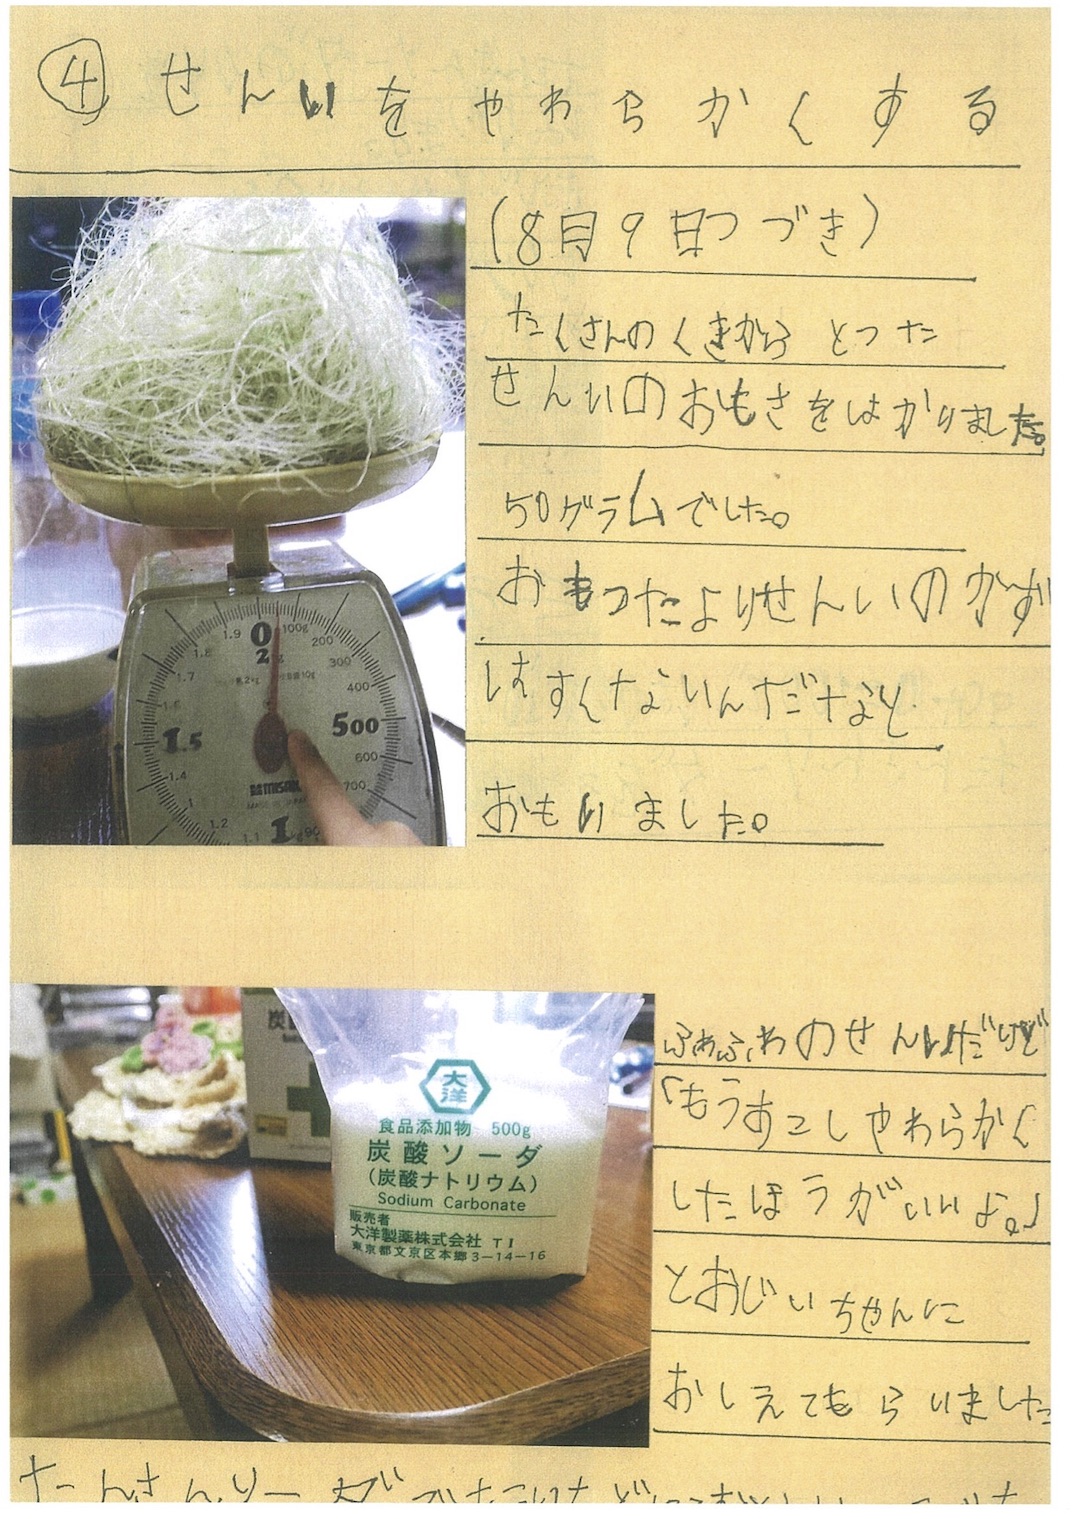 ④せんいをやわらかくする
(8月9日つづき)
たくさんのくきからとった
せんいのおもさをはかりました。
50グラムでした。
おもったよりせんいのかず
はすくないんだなと
おもいました。
1.9 0 100g
2kg 200
1.8 300
1.7 400
1.6
1.5 500
600
1.4 700
1.2 1.1 1kg 90
ふわふわのせんいだけど
「もうすこしやわらかく
したほうがいいよ。」
とおじいちゃんに
おしえてもらいました
炭
大洋
食品添加物 500g
炭酸ソーダ
(炭酸ナトリウム)
Sodium Carbonate
販売者
大洋製薬株式会社 TI
東京都文京区本郷3-14-16
たんさんソーダ